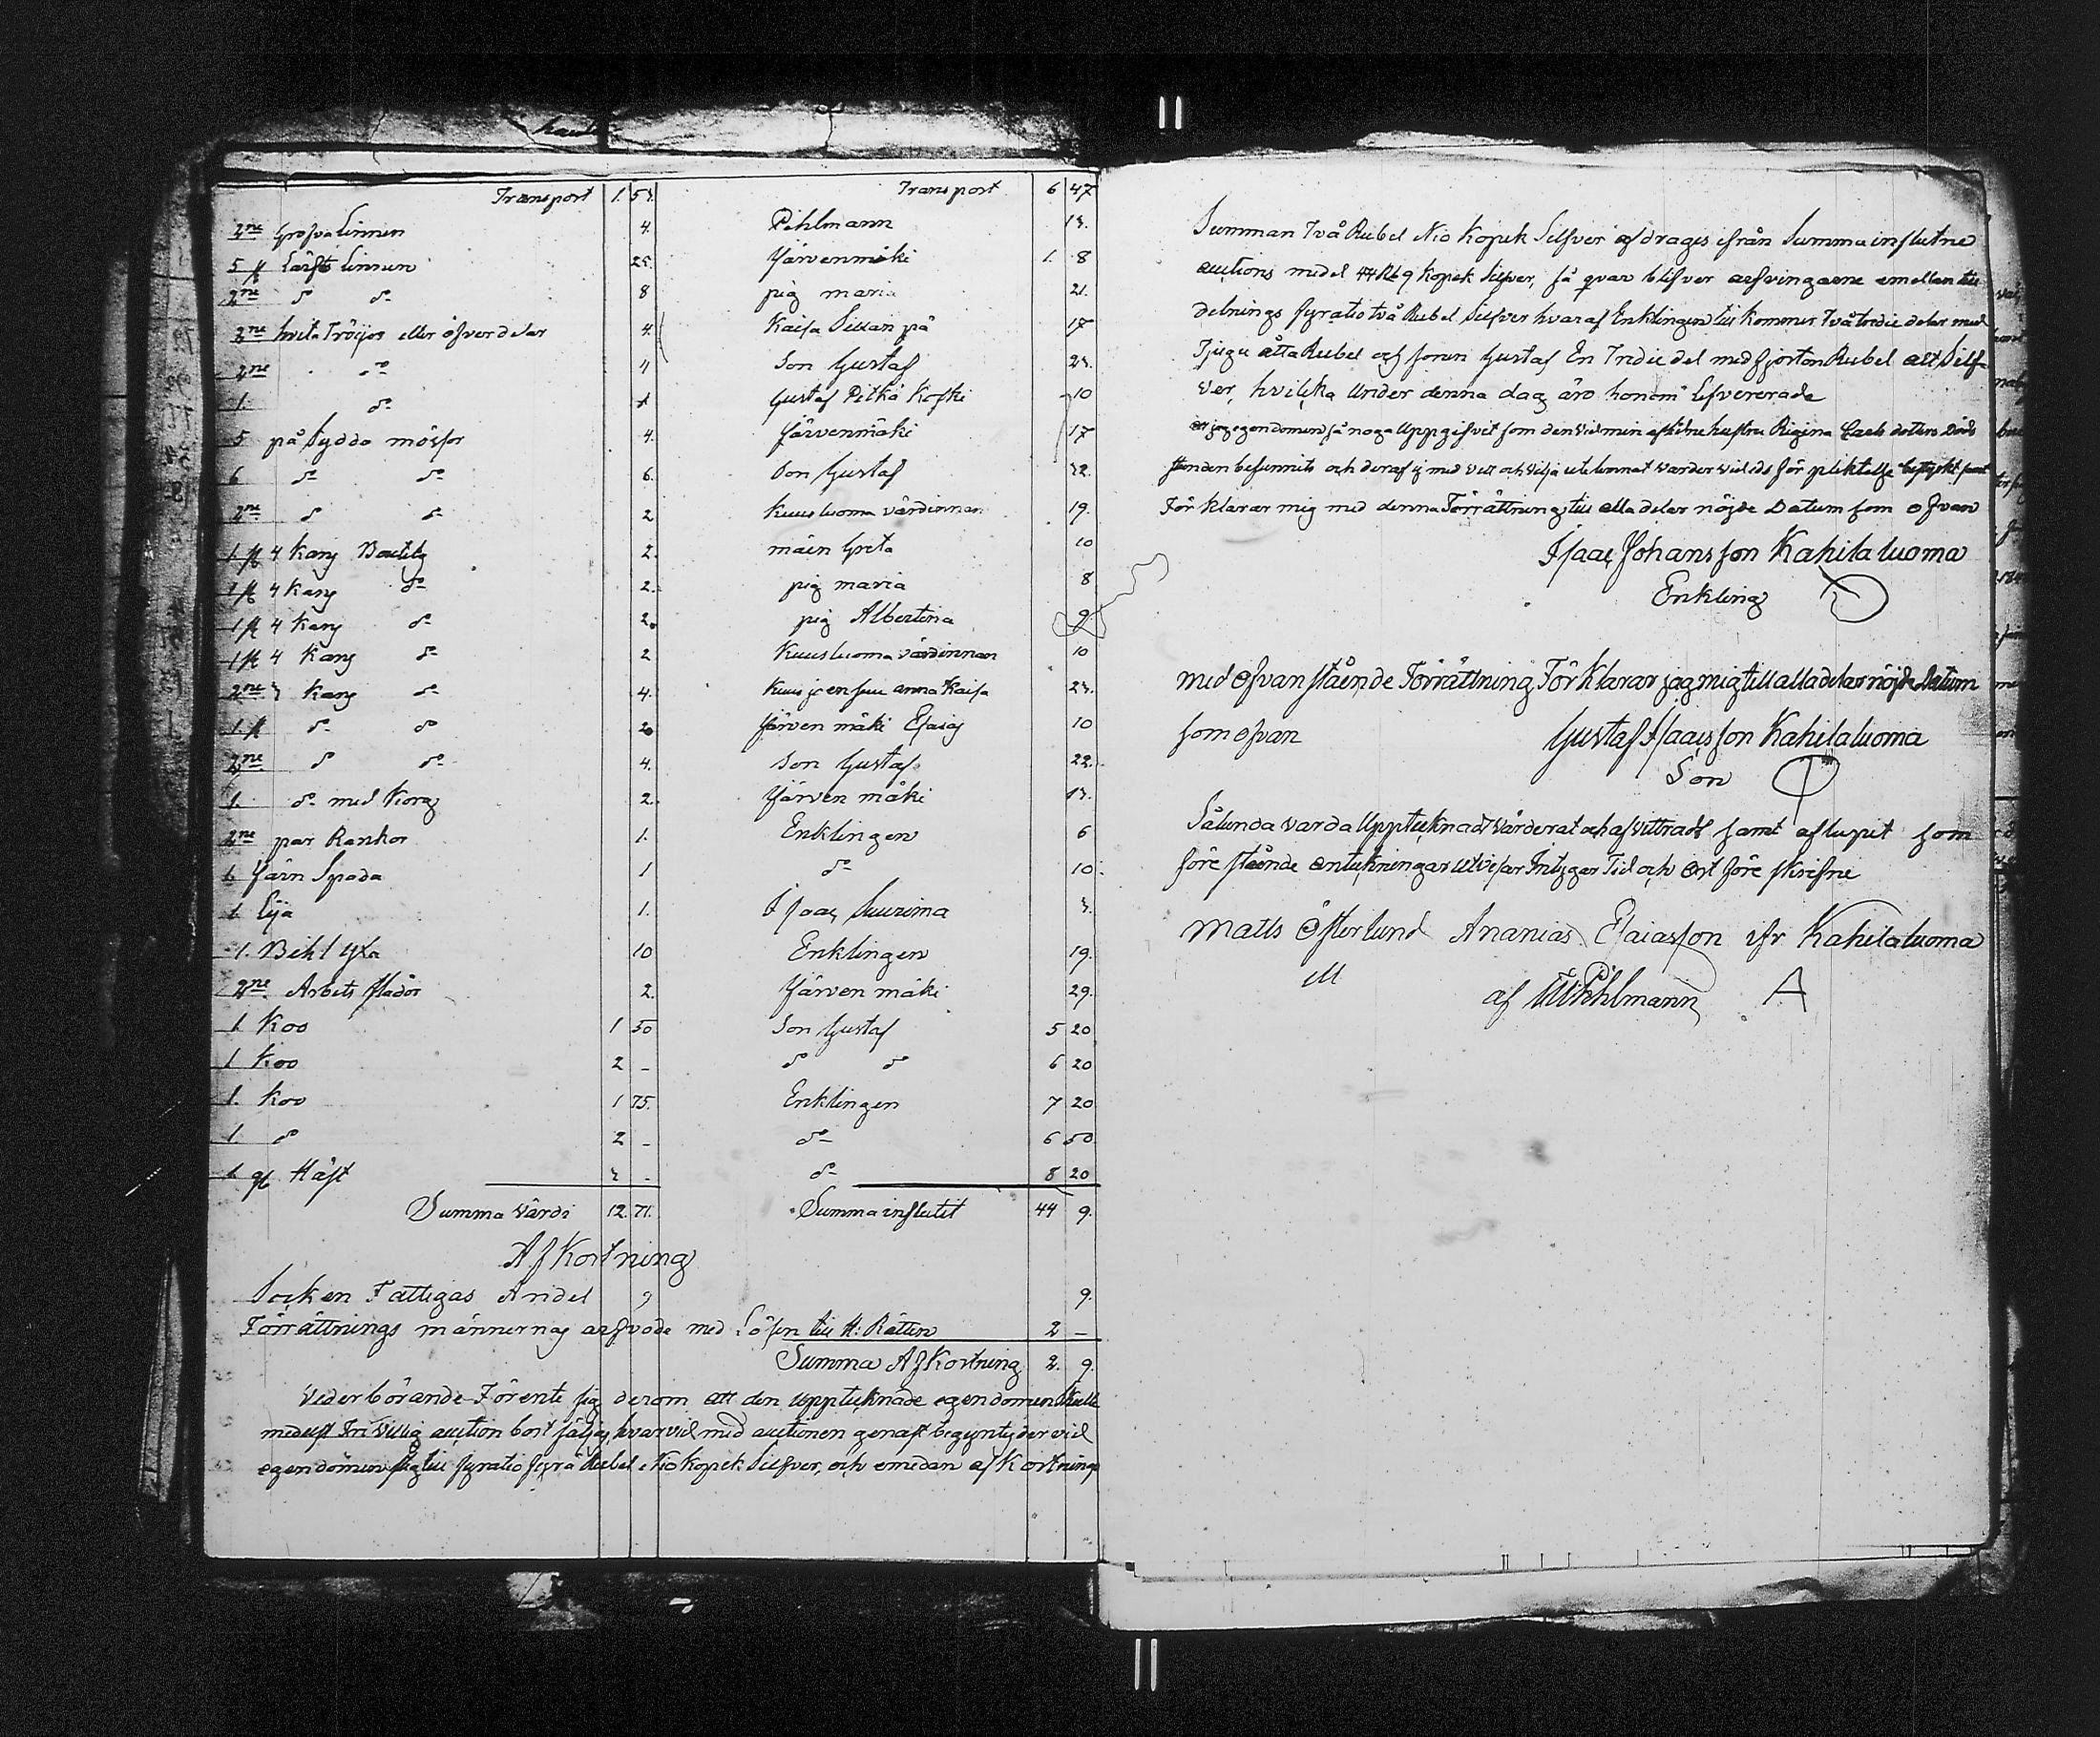 Transport 1. 53. Transport 6 47
2ne Grofva Linnen 4. Pihlmann 13.
5 st Lärfts Linnen 25. Järvenmäki 1. 8
2ne do do 8 pig maria 21.
2ne hvita Tröijor eller öfverdelar 4. Kaisa 17
2ne do 4 Son Gustaf 23.
1. do Gustaf Pitkä Koski 10
5 på Sydda mössor 4. Järvenmäki 17
6 do do 6. Son Gustaf 32.
2ne do do 2 Kuusluoma värdinnan 19.
1 st 4 Kang 2. Greta 10
1 st 4 Kang do 2. pig maria 8
1 st 4 Kang do 2. pig Albertina 9
1 st 4 Kang do 2 Kuusluoma värdinnan 10
2ne 3 Kang do 4. anna Kaisa 23.
1 st do do 2. Järvenmäki Esaias 10
2ne do do 4. Son Gustaf 22.
1. do med Korg 2. Järvenmäki 13.
2ne par Rankor 1. Enklingen 6
1. Järn Spada 1 do 10.
1. Lija 1. Isaac 3.
1. Bihl Yxa 10 Enklingen 19.
2ne Arbets slädor 2. Järvenmäki 29.
1. Koo 1 50 Son Gustaf 5 20
1 Koo 2 - do do 6 20
1. Koo 1 75. Enklingen 7 20
1. do 2 - do 6 50.
1. gl Häst 3 - do 8 20
Summa värdi 12. 71. Summa influtit 44 9.
Af Kortning
Socken Fattigas Andel 9.
Förrättnings männernas arfvode med Lösen till H: Rätten 2 -
Summa Af Kortning 2. 9.
Vederbörande Förente sig derom att den Upptecknade egendomen skulle
medelst Fri Villig auction bort säljas, hvarvid med auctionen genast begyntes, der vid
egendomen stig till fyratio fyra Rubel Nio Kopek Silfver, och emedan af Kortnings
Summan Två Rubel Nio Kopek Silfver afdrages ifrån Summa influtne
auctions medel 44 Rbl 9 Kopek Silfver, så qvar blifver arfvingarne emellan till
delnings fyratio två Rubel Silfver hvaraf Enklingen till kommer Två tredie delar med
Tjugu åtta Rubel och sonen Gustaf En Tredie del med fjorton Rubel alt Silf-
ver, hvilka Under denna dag äro honom Lefvererade
at jag egendomen så noga Uppgifvet som den vid min aflidne hustru Regina dotters Döds
stunden befunnits och deraf ej med vett och vilja utelemnat varder vid eds för pliktelse
För klarar mig med denna Förrättning till alla delar nöjde Datum som ofvan
Isaac Johansson Kahilaluoma
Enkling
med ofvanstående Förrättning För klarar jag mig till alla delar nöjde Datum
som ofvan Gustaf Isacsson Kahilaluoma
Son
Sålunda varda Upptecknadt Värderat och afvittradt samt aflupit som
före stående anteckningar utvisar Intygar Tid och Ort före skrifne
Matts Österlund Ananias Esaiasson ifr Kahilaluoma
M
af Pihlmann A